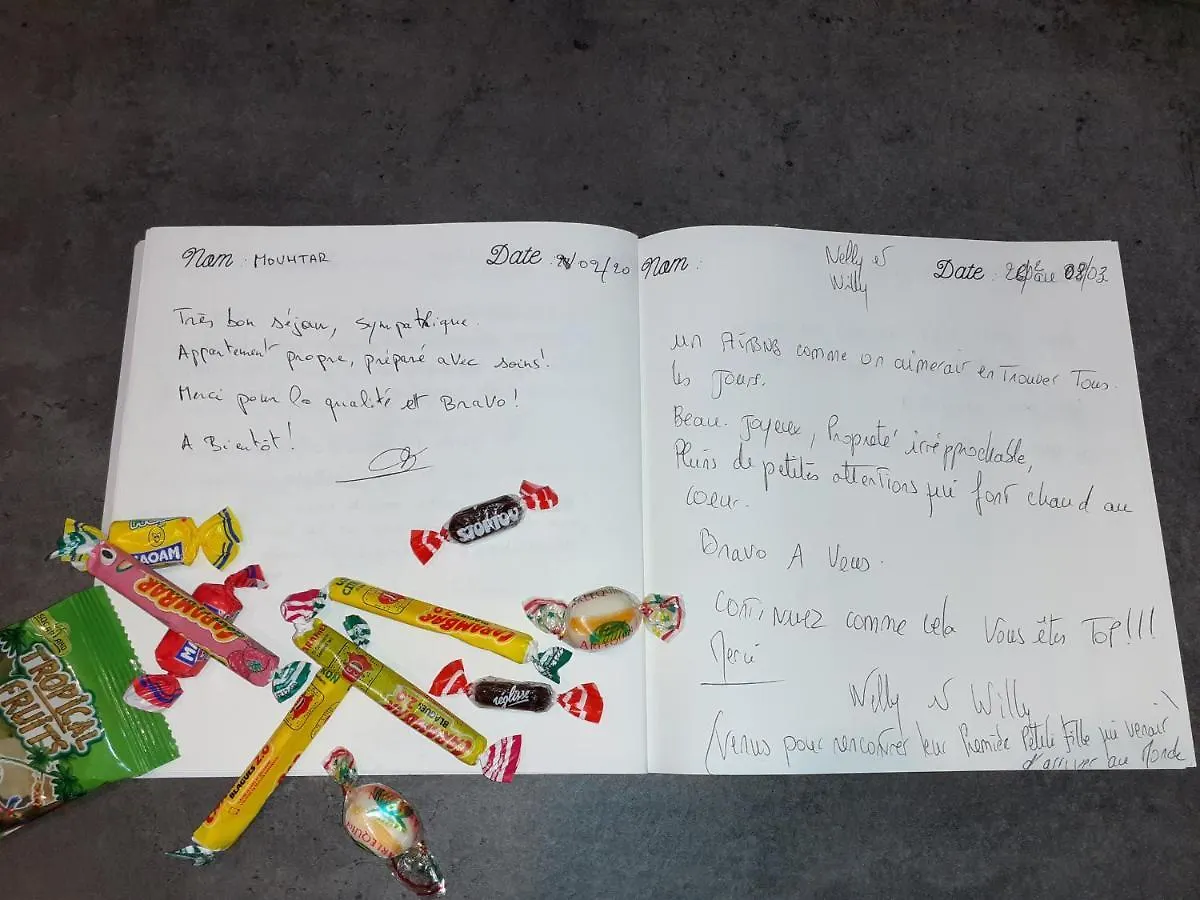 Nom : MOUHTAR
Date : /02/20
Très bon séjour, sympathique.
Appartement propre, préparé avec soins!
Merci pour la qualité et Bravo!
A Bientôt!
Nom :
Nelly et
Willy
Date : 03
un AIRBNB comme on aimerait en Trouver Tous
les Jours.
Beau. Joyeux, Propreté irréprochable,
Pleins de petites attentions qui font chaud au
coeur.
Bravo A Vous.
CONTINUEZ comme cela Vous êtes TOP!!!
Merci
Willy
(Venus pour rencontrer leur Première Petite fille qui venait
d'arriver au Monde
MAOAM
CARAMBAR
MA
TROPICAL
FRUITS
STOPTOU
CARAMBAR
réglisse
BLAGUES 2.0
BLAGUES 2.0
ARLEQUIN
ARLEQUIN